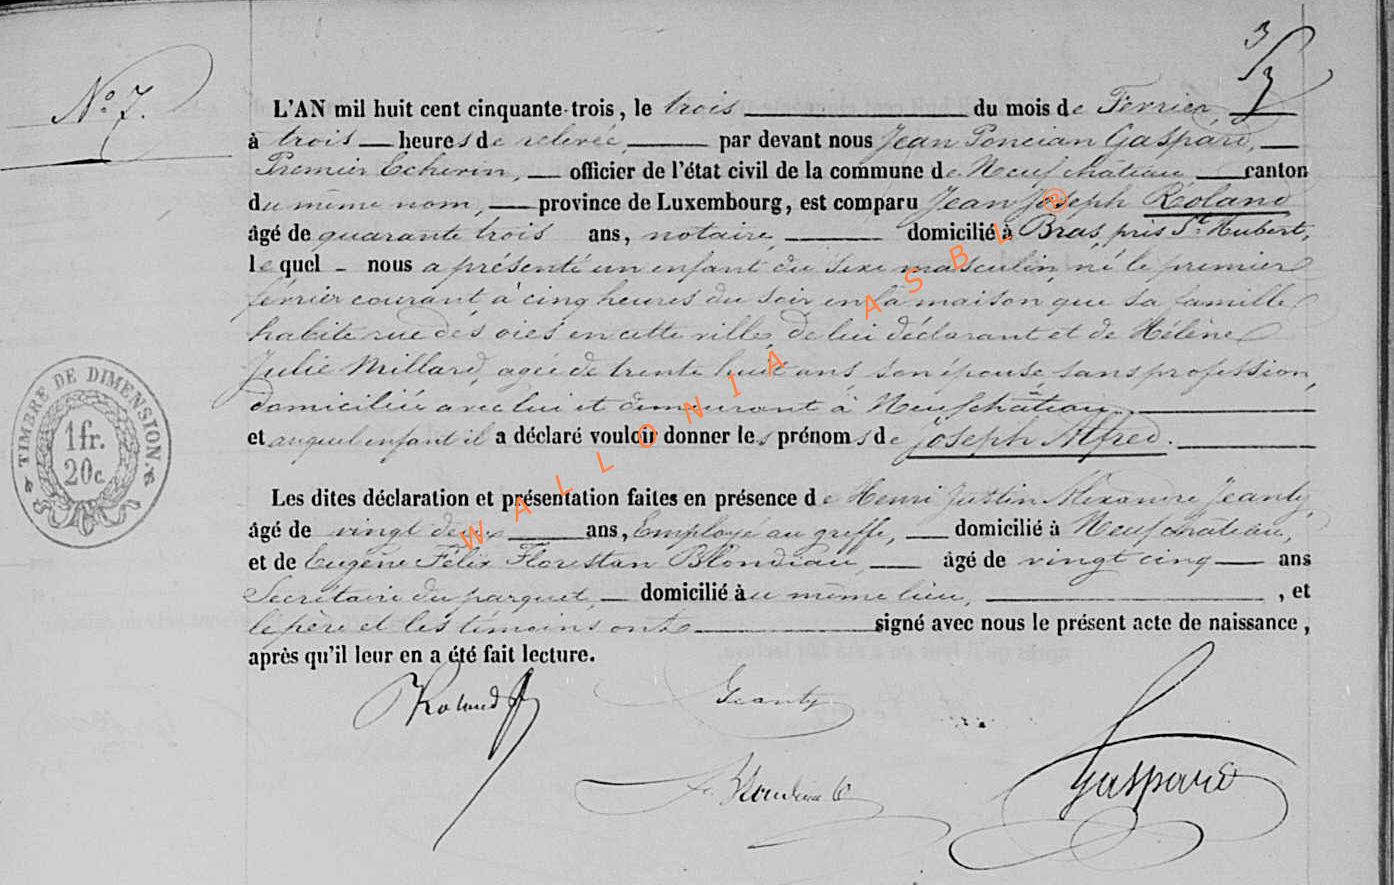 3/3
N° 7.
L'AN mil huit cent cinquante-trois, le trois du mois de Fevrier
à trois heures de relevée, par devant nous Jean Poncian Gaspard,
Premier Echevin, officier de l'état civil de la commune de Neufchâteau canton
du même nom, province de Luxembourg, est comparu Jean Joseph Roland
âgé de quarante trois ans, notaire, domicilié à Bras, près St. Hubert,
lequel nous a présenté un enfant du sexe masculin, né le premier
février courant à cinq heures du soir en la maison que sa famille
habite rue des oies en cette ville, de lui déclarant et de Hélène
Julie Millard, agée de trente huit ans son épouse, sans profession,
domiciliée avec lui et demeurant à Neufchâteau.
et auquel enfant il a déclaré vouloir donner les prénoms de Joseph Alfred.
TIMBRE DE DIMENSION.
1 fr.
20c.
Les dites déclaration et présentation faites en présence de Henri Justin Alexandre Jeanty,
âgé de vingt deux ans, Employé au greffe, domicilié à Neufchateau,
et de Eugène Félix Florestan Blondiau, âgé de vingt cinq ans
Secrétaire du parquet, domicilié au même lieu, , et
le père et les témoins ont signé avec nous le présent acte de naissance,
après qu'il leur en a été fait lecture.
Roland
Jeanty
Blondiau
Gaspard
WALLONIA ASBL ®